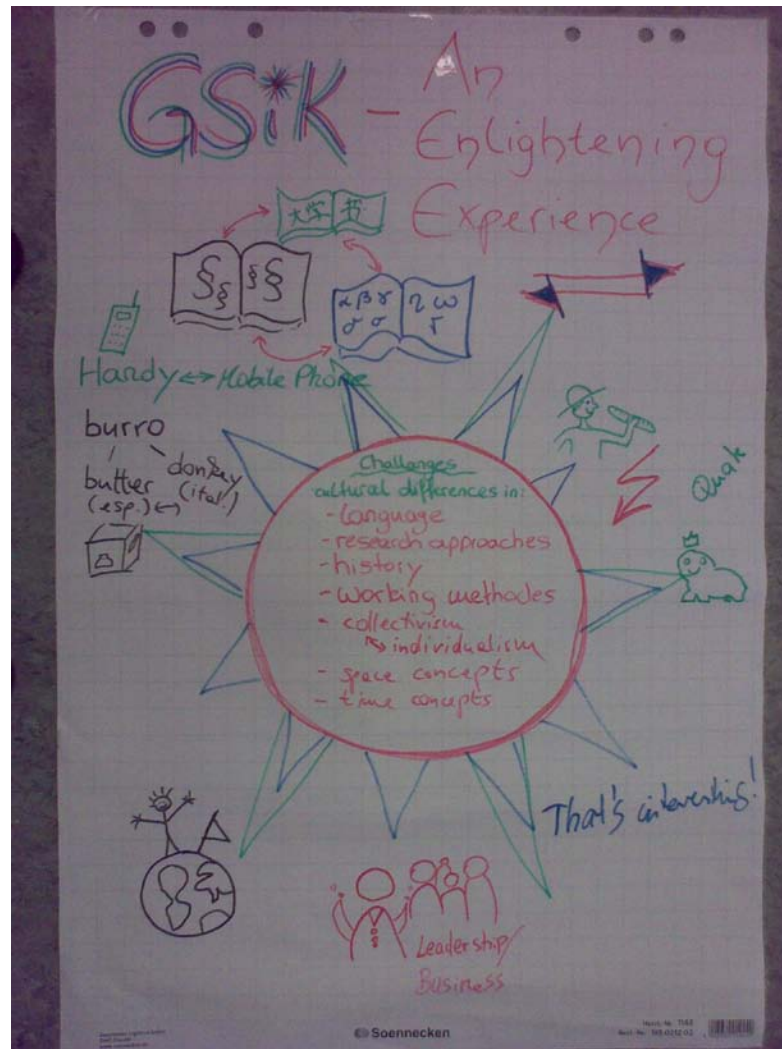 GSiK - An
Enlightening
Experience
大学 书
§§ §§
α β γ η ω
σ σ Γ
Handy ↔ Mobile Phone
burro
butter donkey
(esp.) ↔ (ital.)
Quak
Challanges
cultural differences in:
- language
- research approaches
- history
- working methodes
- collectivism
↔ individualism
- space concepts
- time concepts
That's interesting!
Leadership/
Business
Soennecken